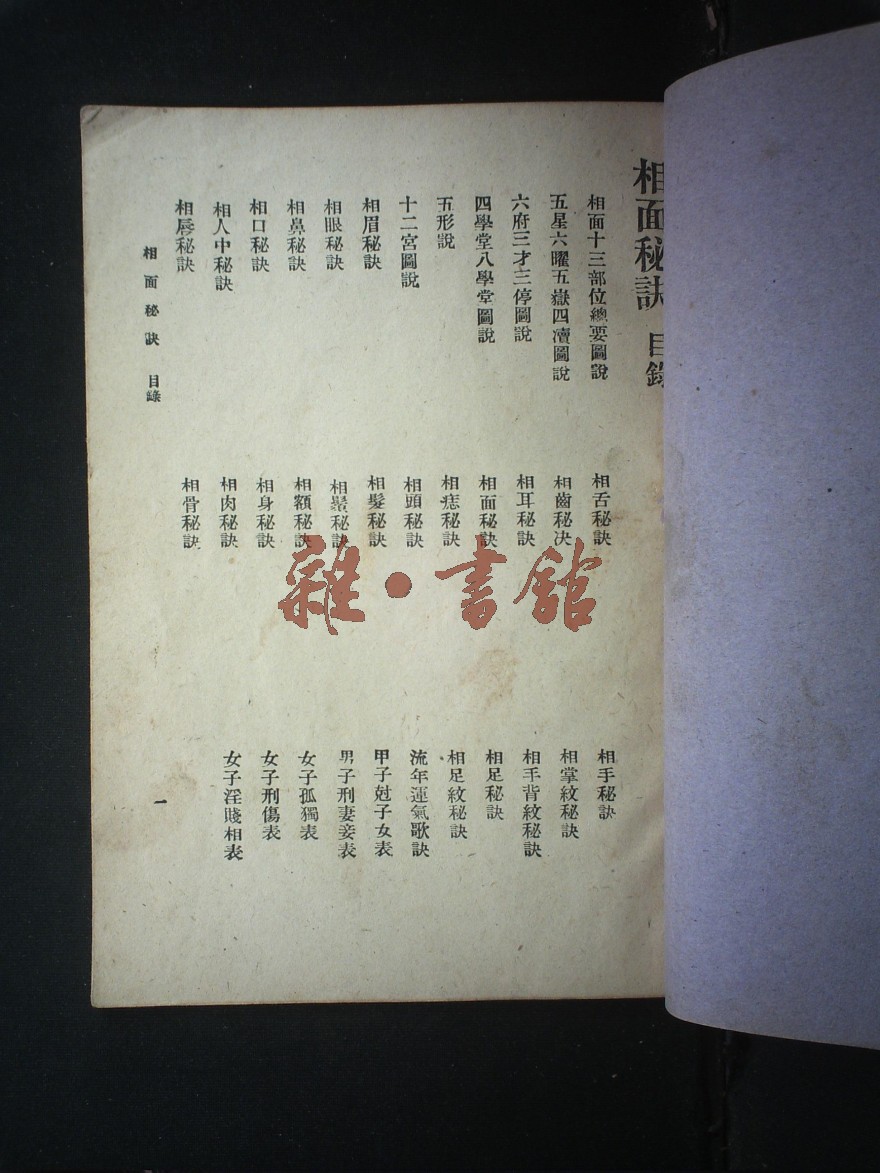 相面秘訣 目錄
相面十三部位總要圖說
五星六曜五嶽四瀆圖說
六府三才三停圖說
四學堂八學堂圖說
五形說
十二宮圖說
相眉秘訣
相眼秘訣
相鼻秘訣
相口秘訣
相人中秘訣
相唇秘訣
相舌秘訣
相齒秘决
相耳秘訣
相面秘訣
相痣秘訣
相頭秘訣
相髮秘訣
相鬚秘訣
相額秘訣
相身秘訣
相肉秘訣
相骨秘訣
相手秘訣
相掌紋秘訣
相手背紋秘訣
相足秘訣
相足紋秘訣
流年運氣歌訣
甲子尅子女表
男子刑妻妾表
女子孤獨表
女子刑傷表
女子淫賤相表
相面秘訣 目錄
一
雜·書館